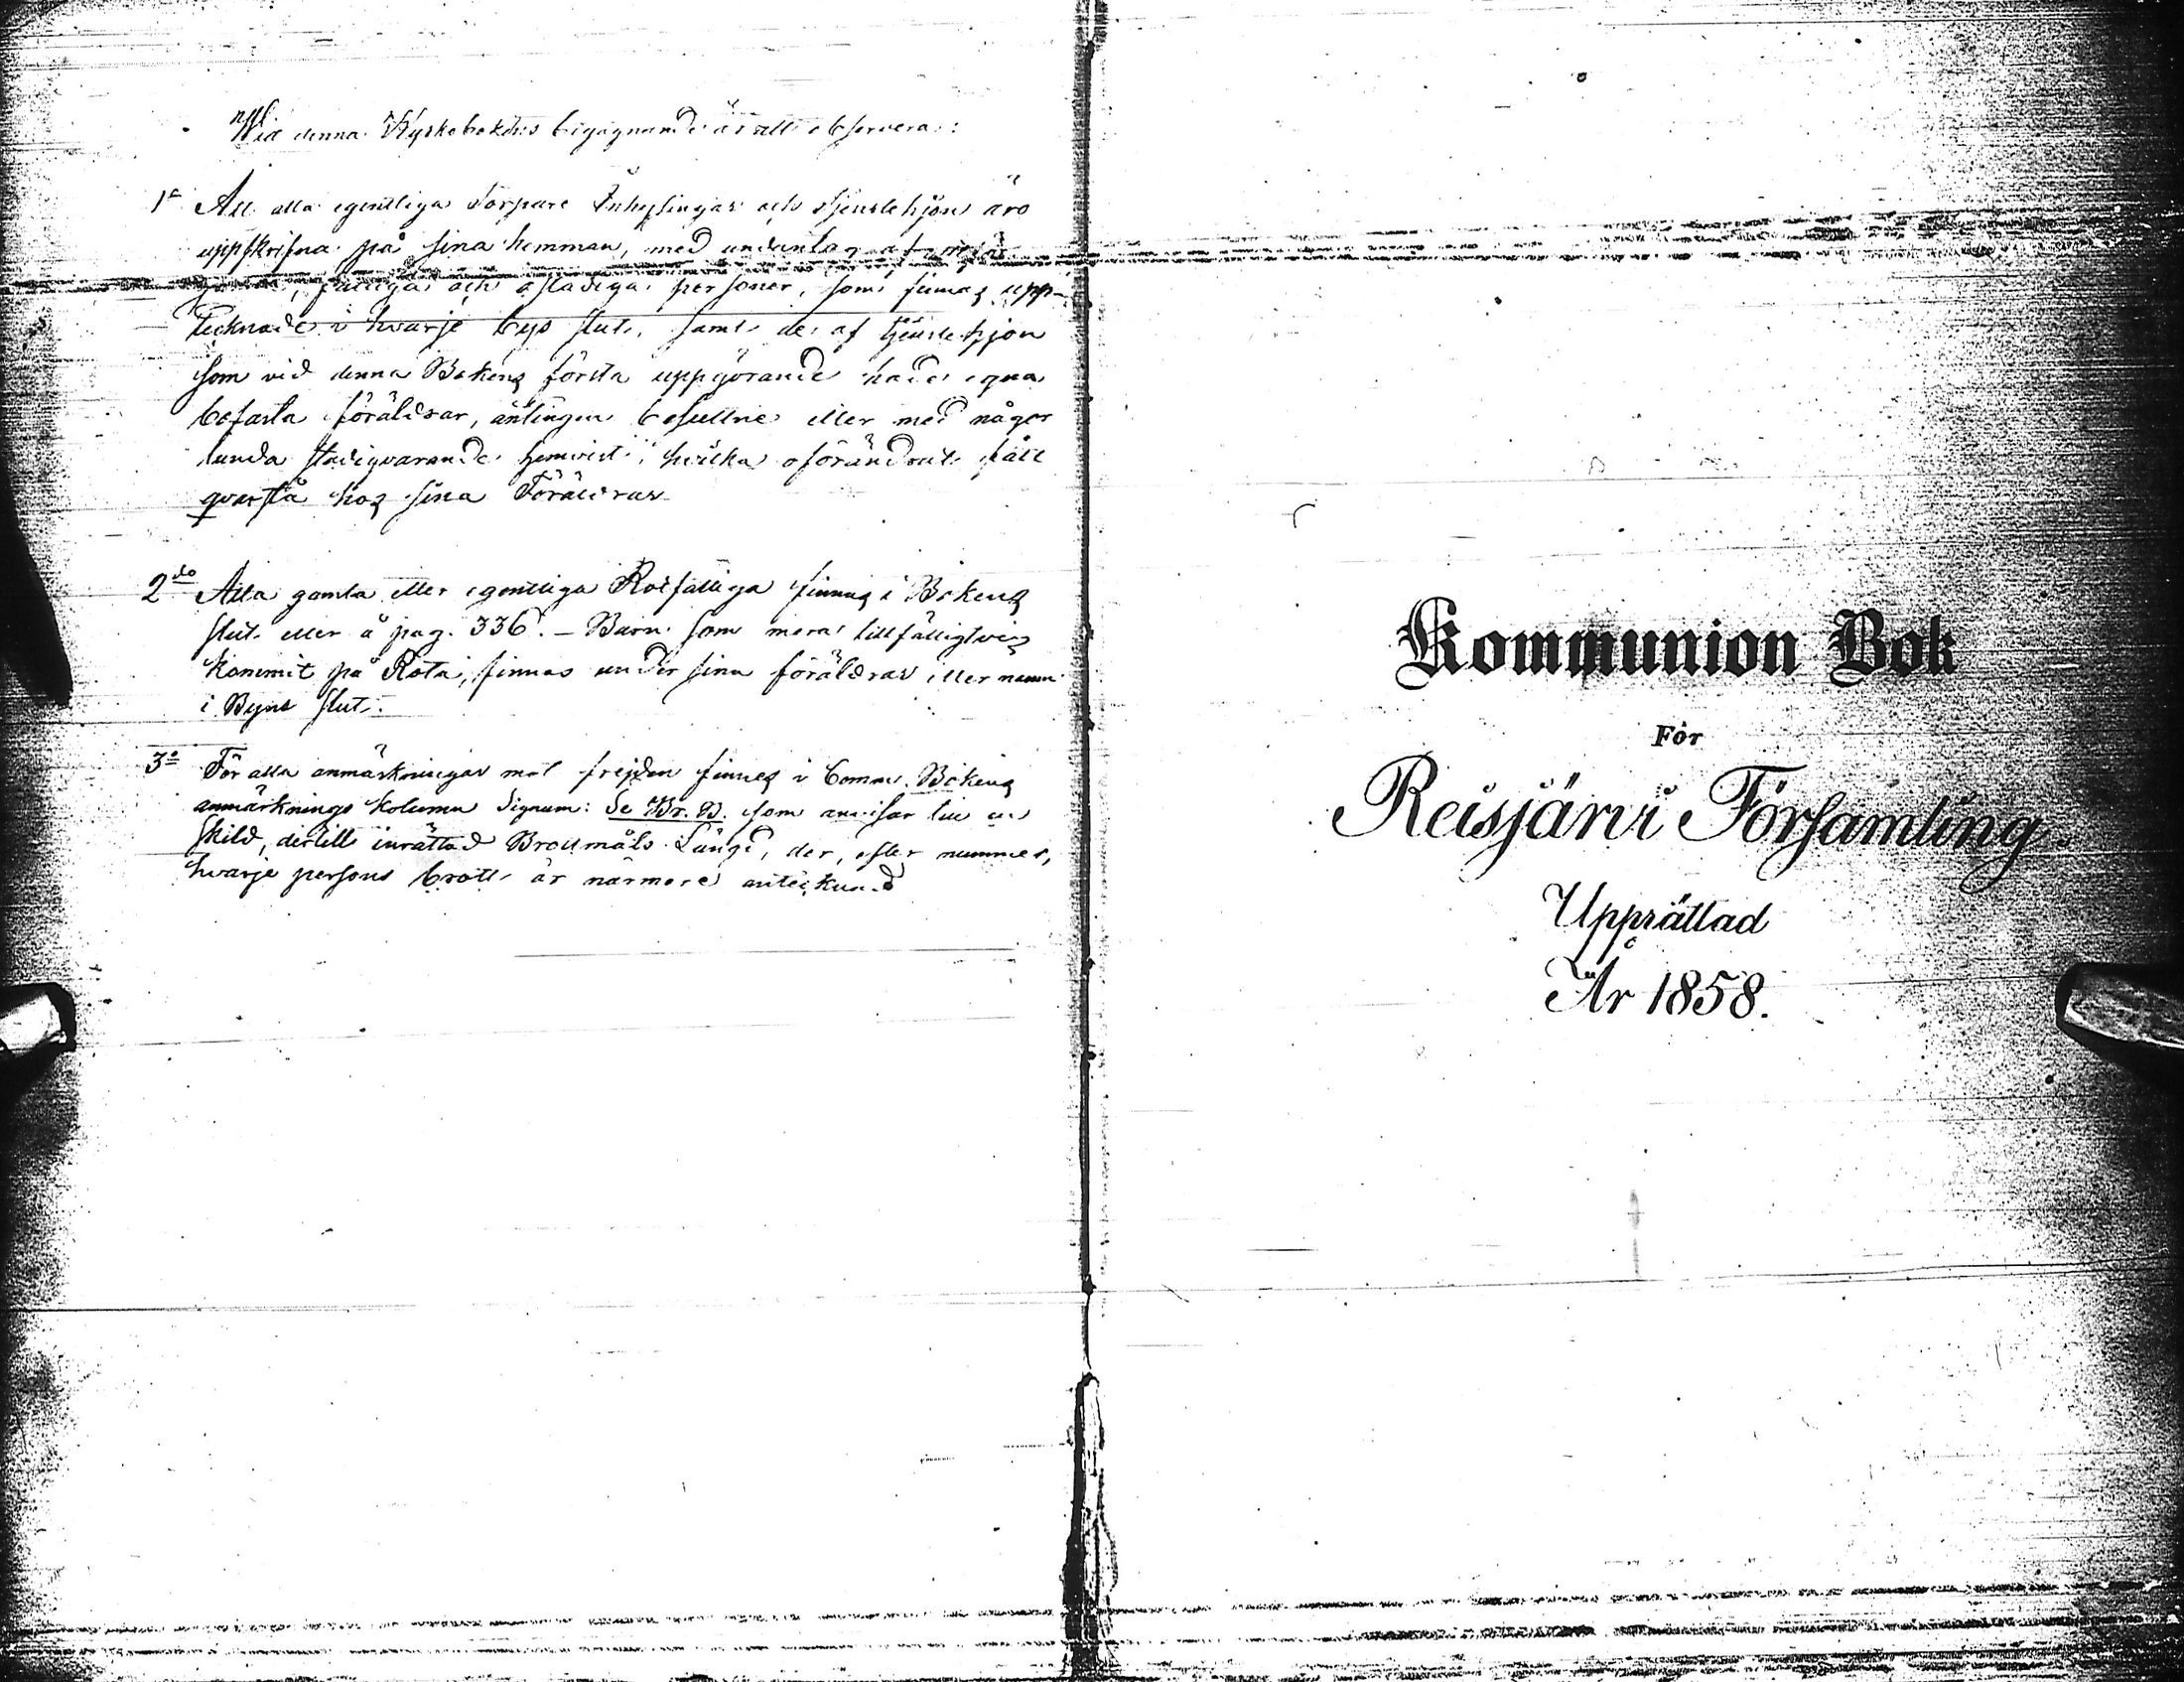 Vid denna Kyrkobokens begagnande är att observera:
1o Att alla egentliga Torpare Inhysingar och tjenstehjon äro
uppskrifna på sina hemman, med undantag af
fattiga och ostadiga personer, som finnas upp-
tecknade i hvarje bys slut, samt de af tjenstehjon
som vid denna Bokens första uppgörande hade egna
bofasta föräldrar, antingen besuttne eller med någor
lunda stadigvarande hemvist, hvilka oförändradt fått
qvarstå hos sina Föräldrar
2do Alla gamla eller egentliga Rotfattiga finnas i Bokens
slut eller å pag. 336. – Barn som mera tillfälligtvis
kommit på Rota, finnas under sina föräldrar eller namn
i Byns slut.
3o För alla anmärkningar mot frejden finnes i Comm. Bokens
anmärknings kolumn Signum: Se Br. B. som anvisar till en
skild, dertill inrättad Brottmåls Längd, der, efter nummer,
hvarje persons brott är närmare antecknad
Kommunion Bok
För
Reisjärvi Församling.
Upprättad
År 1858.